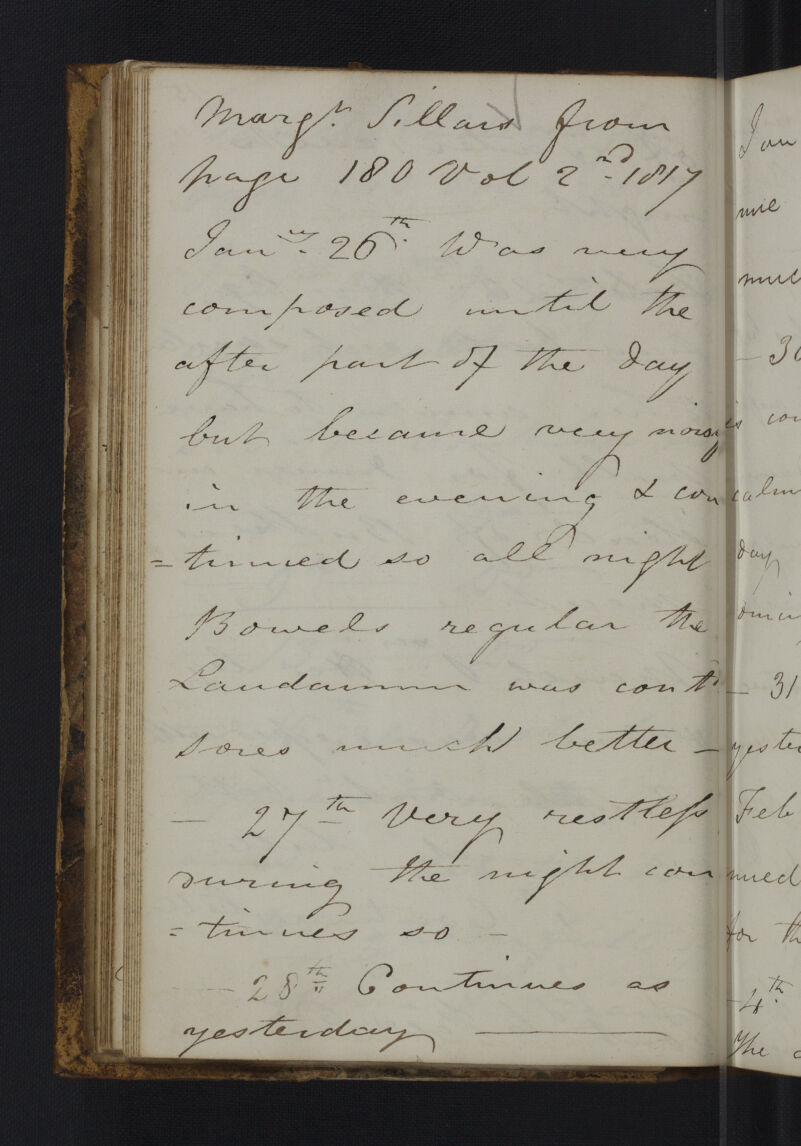 Margt. Sillars from
page 180 Vol 2nd. 1817
Jany. 26th. Was very
composed until the
after part of the day
but became very noisy
in the evening & con
=tinued so all night
Bowels regular the
Laudamum was contd
sores much better –
– 27th Very restless
during the night con
=tinues so –
– 28th Continues as
yesterday ———
Jan
mul
– 30
is con
calm
day
– 31
yeste
Feb
nued
for th
– 4th.
The